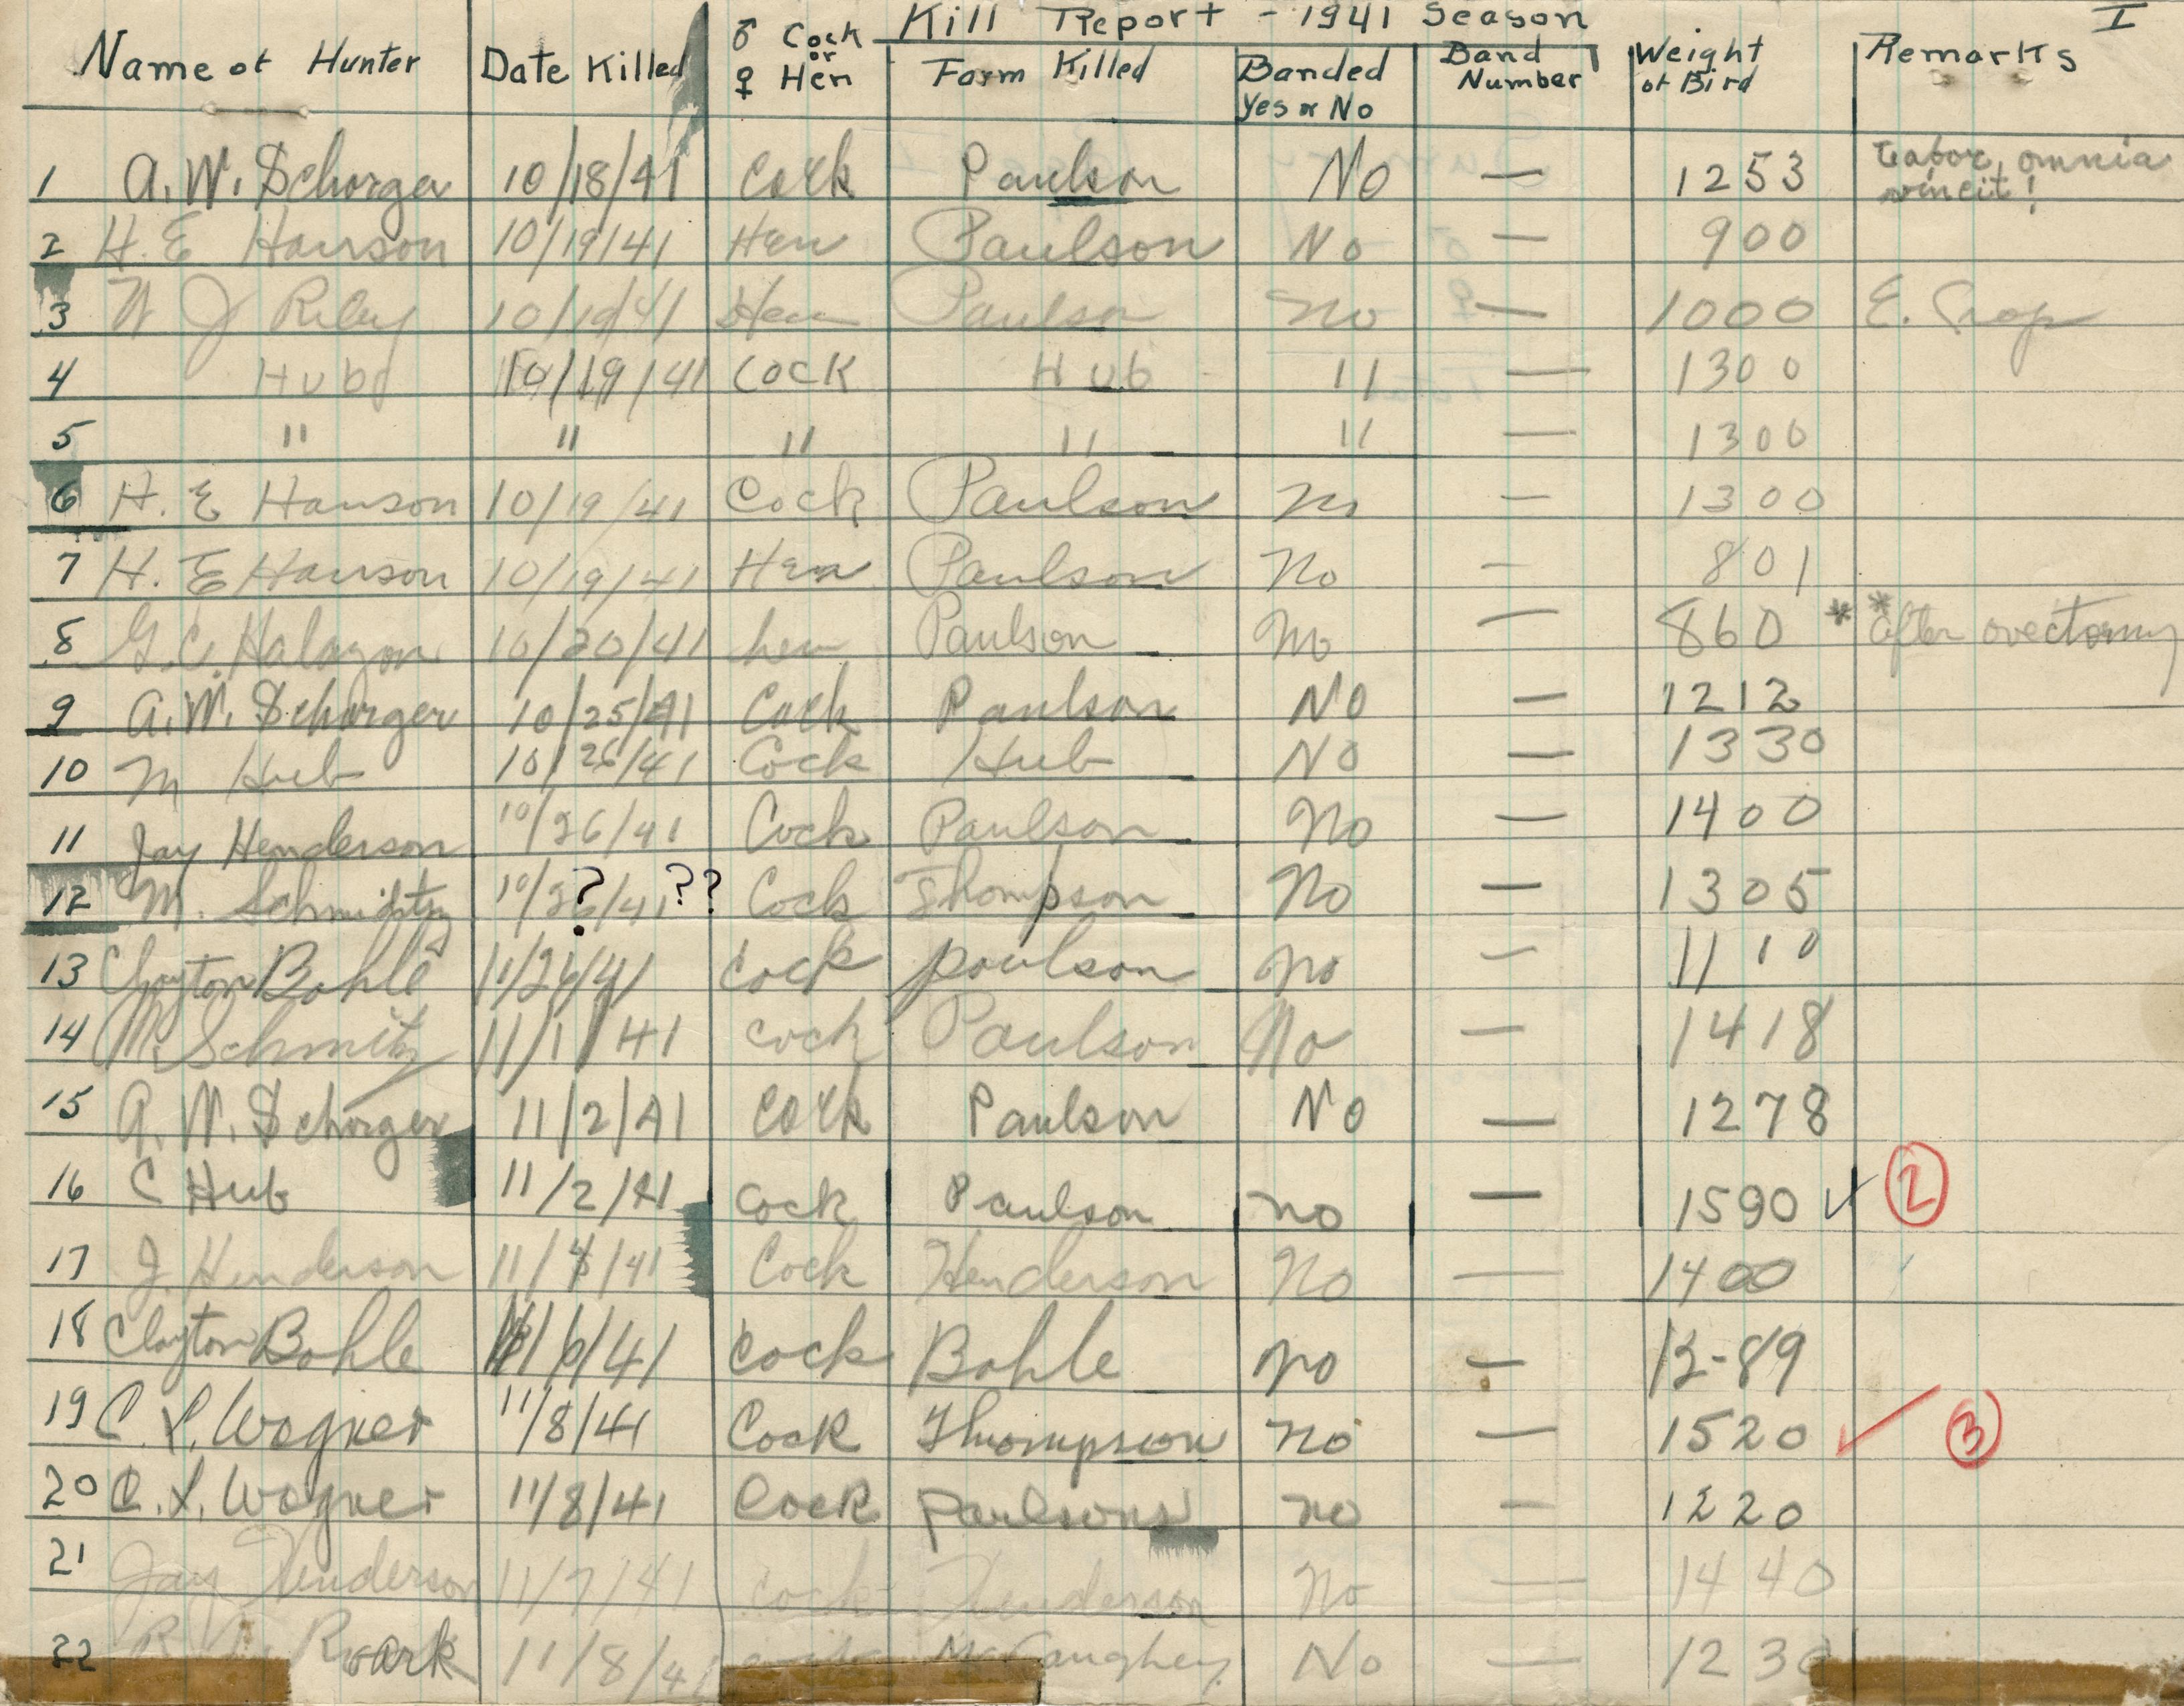 Kill Report - 1941 Season I
Name of Hunter Date Killed ♂ Cock or ♀ Hen Farm Killed Banded Yes or No Band Number Weight of Bird Remarks
1 A. W. Schorger 10/18/41 Cock Paulson No — 1253 Labor omnia vincit!
2 H. E Hanson 10/19/41 Hen Paulson No — 900
3 W J Riley 10/19/41 Hen Paulson No — 1000 E. Crop
4 Hub 10/19/41 Cock Hub 11 — 1300
5 " " " " 11 — 1300
6 H. E Hanson 10/19/41 Cock Paulson No — 1300
7 H. E Hanson 10/19/41 Hen Paulson No — 801
8 G. C. 10/20/41 hen Paulson No — 860 * * after ovectomy
9 A. W. Schorger 10/25/41 Cock Paulson No — 1212
10 M Hub 10/26/41 Cock Hub No — 1330
11 Jay Henderson 10/26/41 Cock Paulson No — 1400
12 M. Schmitz 10/26/41 ? ?? Cock Thompson No — 1305
13 Clayton Bohle 11/26/41 Cock poulson no — 1110
14 M. Schmitz 11/1/41 cock Paulson No — 1418
15 A. W. Schorger 11/2/41 Cock Paulson No — 1278
16 C Hub 11/2/41 Cock Paulson no — 1590 ✓ 2
17 J. Henderson 11/4/41 Cock Henderson No — 1400
18 Clayton Bohle 11/6/41 Cock Bohle no — 13-89
19 C. L. Wagner 11/8/41 Cock Thompson no — 1520 ✓ 3
20 C. L. Wagner 11/8/41 Cock Paulsons no — 1220
21 Jay Henderson 11/7/41 cock Henderson No — 1440
22 Roark 11/8/41 McCaughey No — 1230